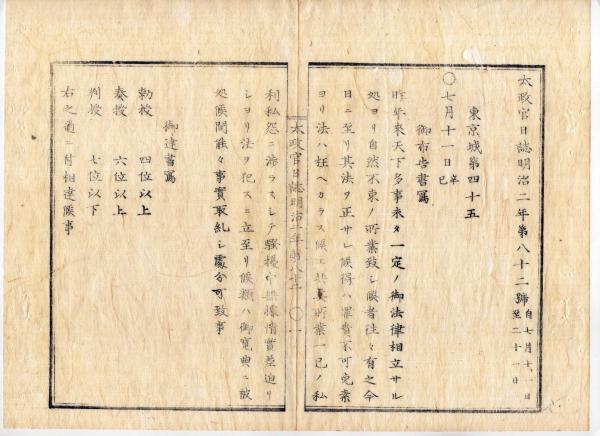 太政官日誌明治二年第八十二號 自七月十一日 至二十一日
東京城第四十五
〇七月十一日辛巳
御布告書寫
昨年來天下多事未タ一定ノ御法律相立サル
処ヨリ自然不束ノ所業致シ候者往々有之今
日ニ至リ其法ヲ正サレ候得ハ罪責不可免素
ヨリ法ハ枉ヘカラス候エ共其所業一己ノ私
太政官日誌明治二年第八十二 〇一
利私怨ニ渉ラスシテ騒擾中無據情實差迫リ
シヨリ法ヲ犯スニ立至リ候類ハ御寛典ニ被
処候間能々事實取糺シ處分可致事
御達書寫
勅授 四位以上
奏授 六位以上
判授 七位以下
右之通ニ付相達候事